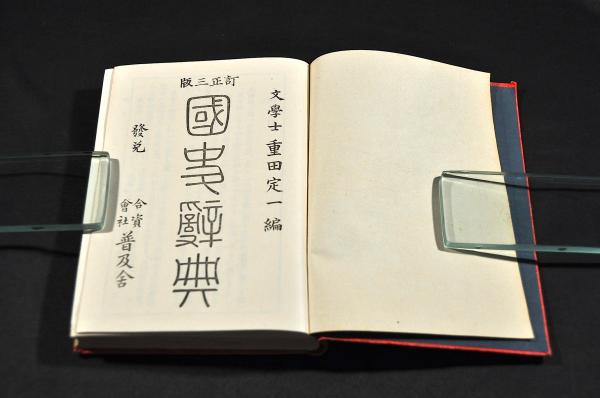 文學士 重田定一編
訂正三版
國史辭典
發兌
合資會社 普及舍